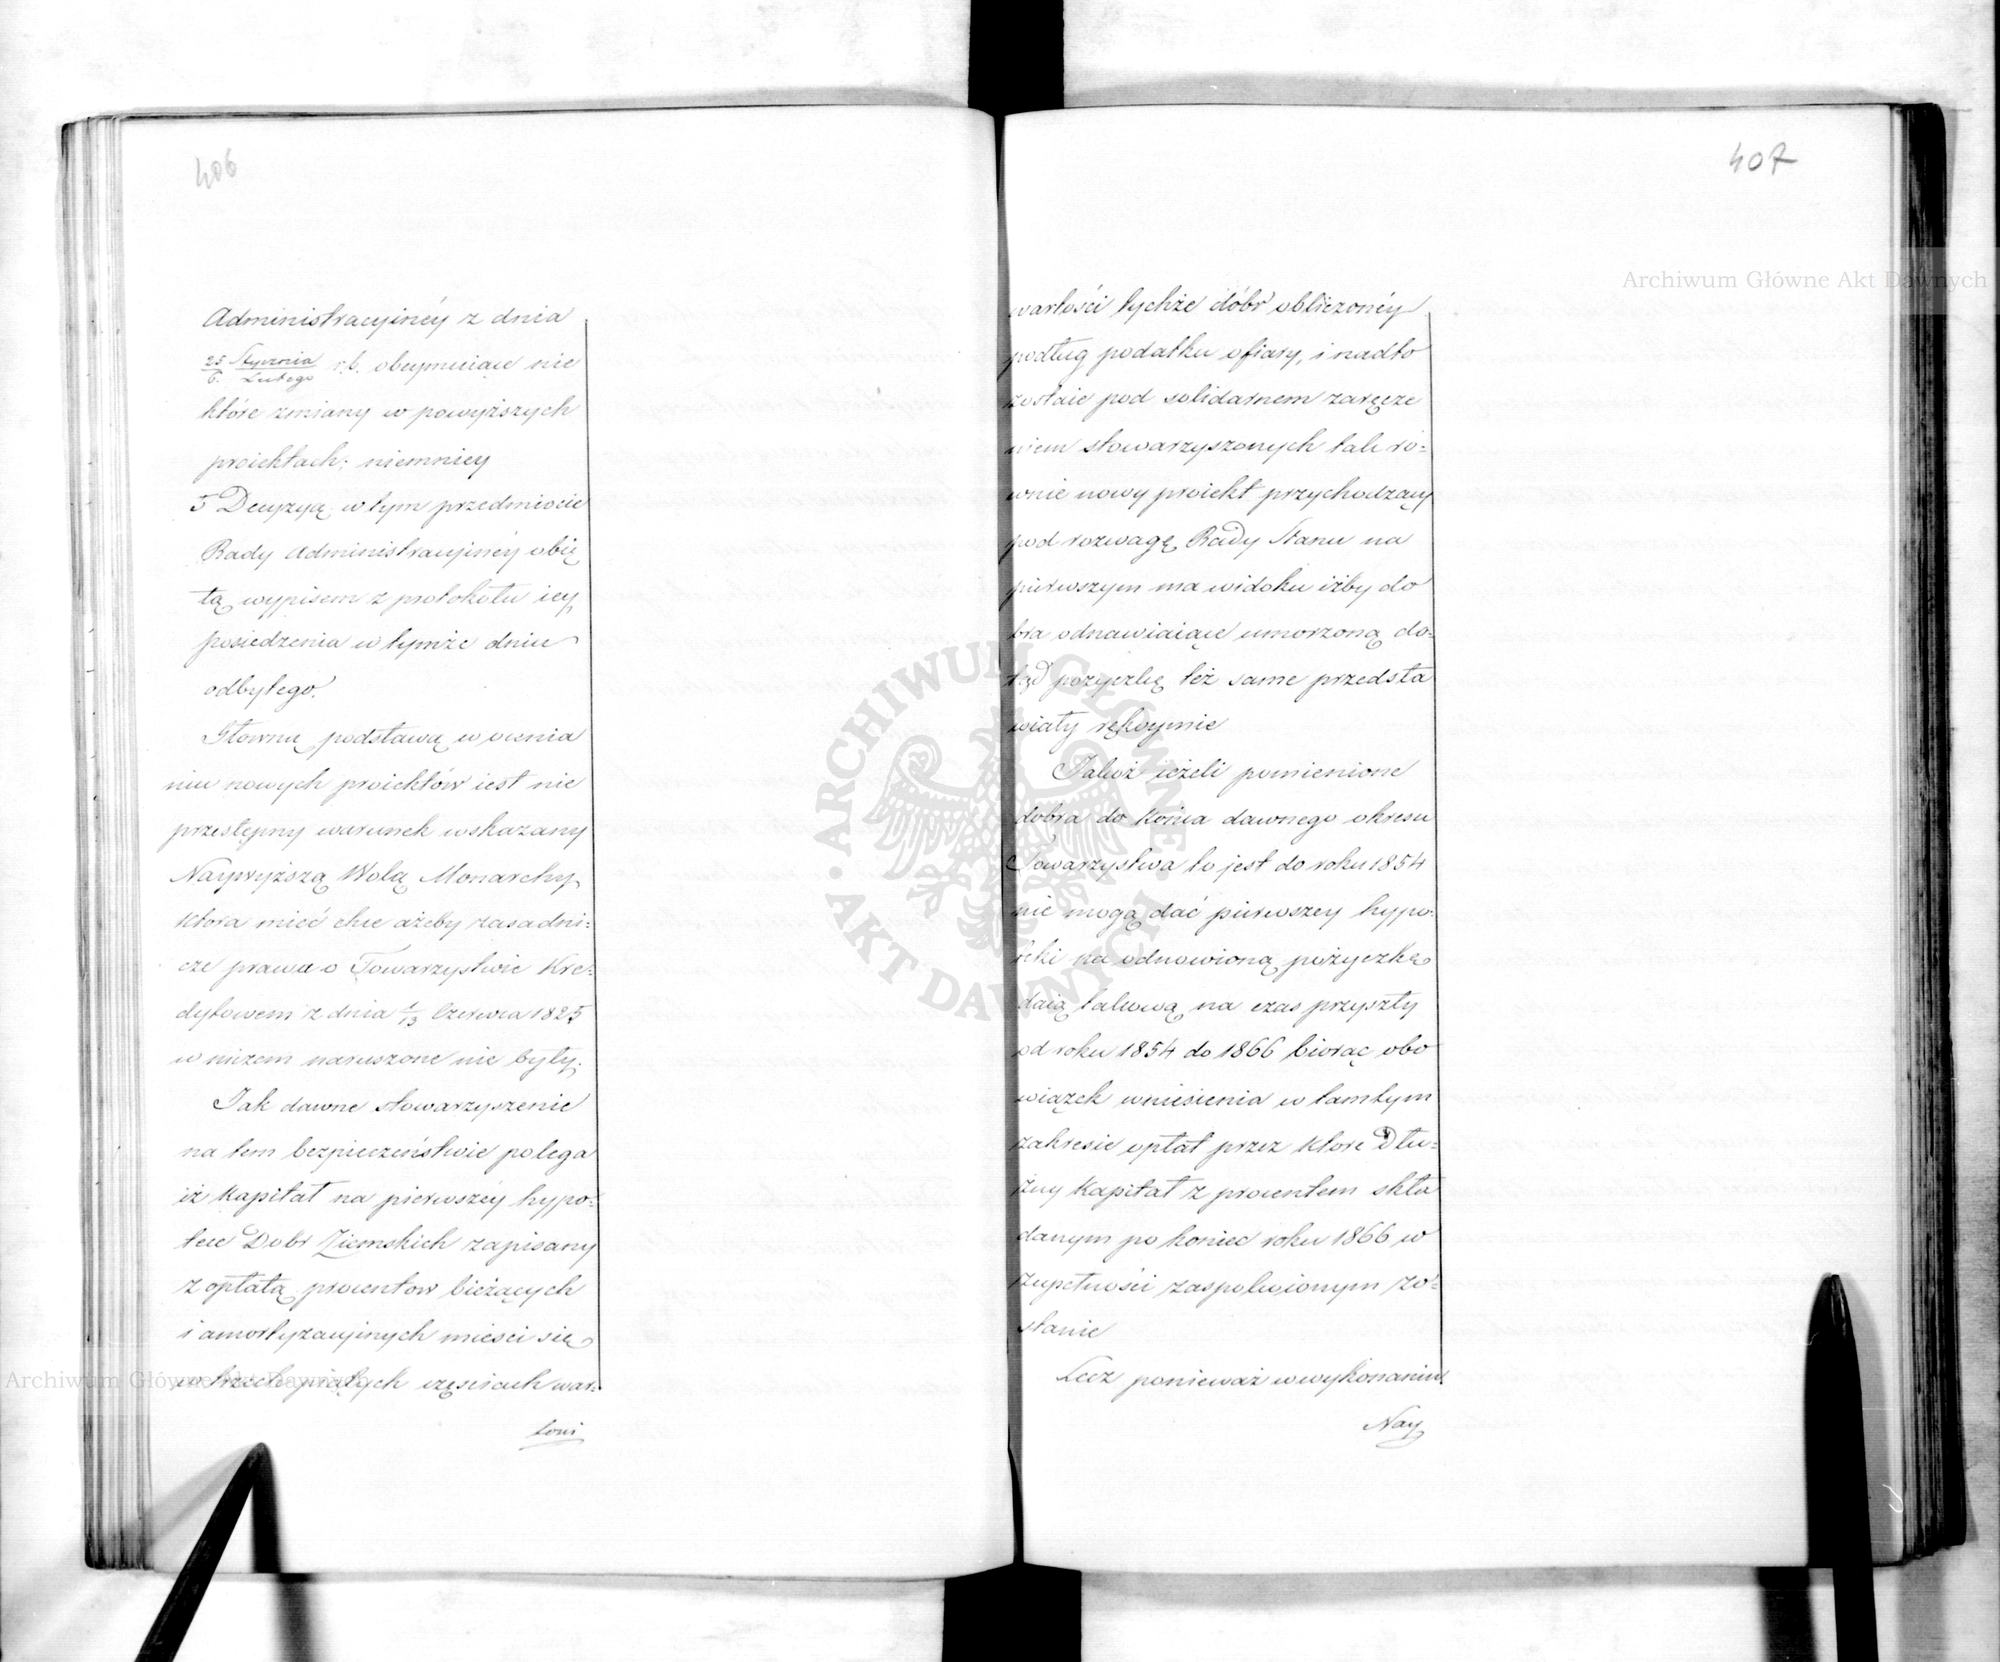 406
Administracyinéy z dnia
25 Stycznia / 6. Lutego r. b. obeymuiące nie
które zmiany w powyższych
proiektach; niemniey
5 Decyzyą w tym przedmiocie
Rady Administracyinéy obię
tą wypisem z protokołu iey
posiedzenia w tymże dniu
odbytego.
Główną podstawą w ocenia
niu nowych proiektów iest nie
przestępny warunek wskazany
Naywyższą Wolą Monarchy
która mieć chce ażeby zasadni=
cze prawa o Towarzystwie Kre=
dytowem z dnia 1/13 Czerwca 1825
w niczem naruszone nie były.
Jak dawne stowarzyszenie
na tem bezpieczeństwie polega
iż Kapitał na pierwszéy hypo=
tece Dobr Ziemskich zapisany
z opłatą procentow bieżących
i amortyzacyinych mieści się
w trzech piątych częściach war=
tości
407
wartości tychże dóbr obliczonéy
podług podatku ofiary, i nadto
zostaie pod solidarnem zaręcze
niem stowarzyszonych tak ró=
wnie nowy proiekt przychodzący
pod rozwagę Rady Stanu na
pierwszym ma widoku iżby do
bra odnawiaiące umorzoną do=
tąd pożyczkę też same przedsta
wiały rękoymie
Jakoż ieżeli pomienione
dobra do końca dawnego okresu
Towarzystwa to jest do roku 1854
nie mogą dać pierwszey hypo=
teki na odnowioną pożyczkę
daią takową na czas przyszły
od roku 1854 do 1866 biorąc obo
wiązek wniesienia w tamtym
zakresie opłat przez które Dłu=
żny Kapitał z procentem skła
danym po koniec roku 1866 w
zupełności zaspokoionym zo=
stanie
Lecz ponieważ w wykonaniu
Nay
Archiwum Główne Akt Dawnych
Archiwum Główne Akt Dawnych
ARCHIWUM GŁÓWNE AKT DAWNYCH